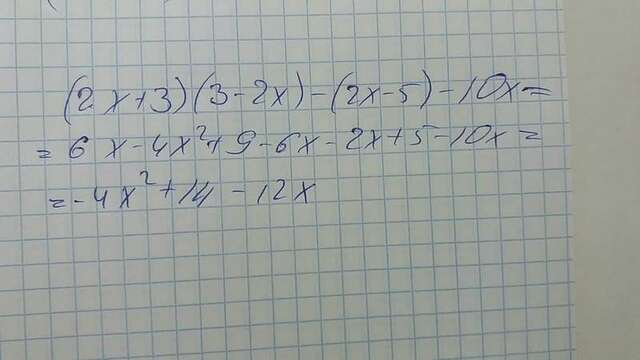 (2x+3)(3-2x)-(2x-5)-10x=
=6x-4x²+9-6x-2x+5-10x=
=-4x²+14-12x